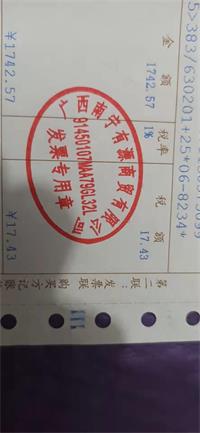 5>383/630201+25*06-8234*
金 额
1742.57
￥1742.57
税率
1%
税 额
17.43
￥17.43
广西南宁有源商贸有限公司
91450107MAA79GL32L
发票专用章
第二联：发票联
购买方记账